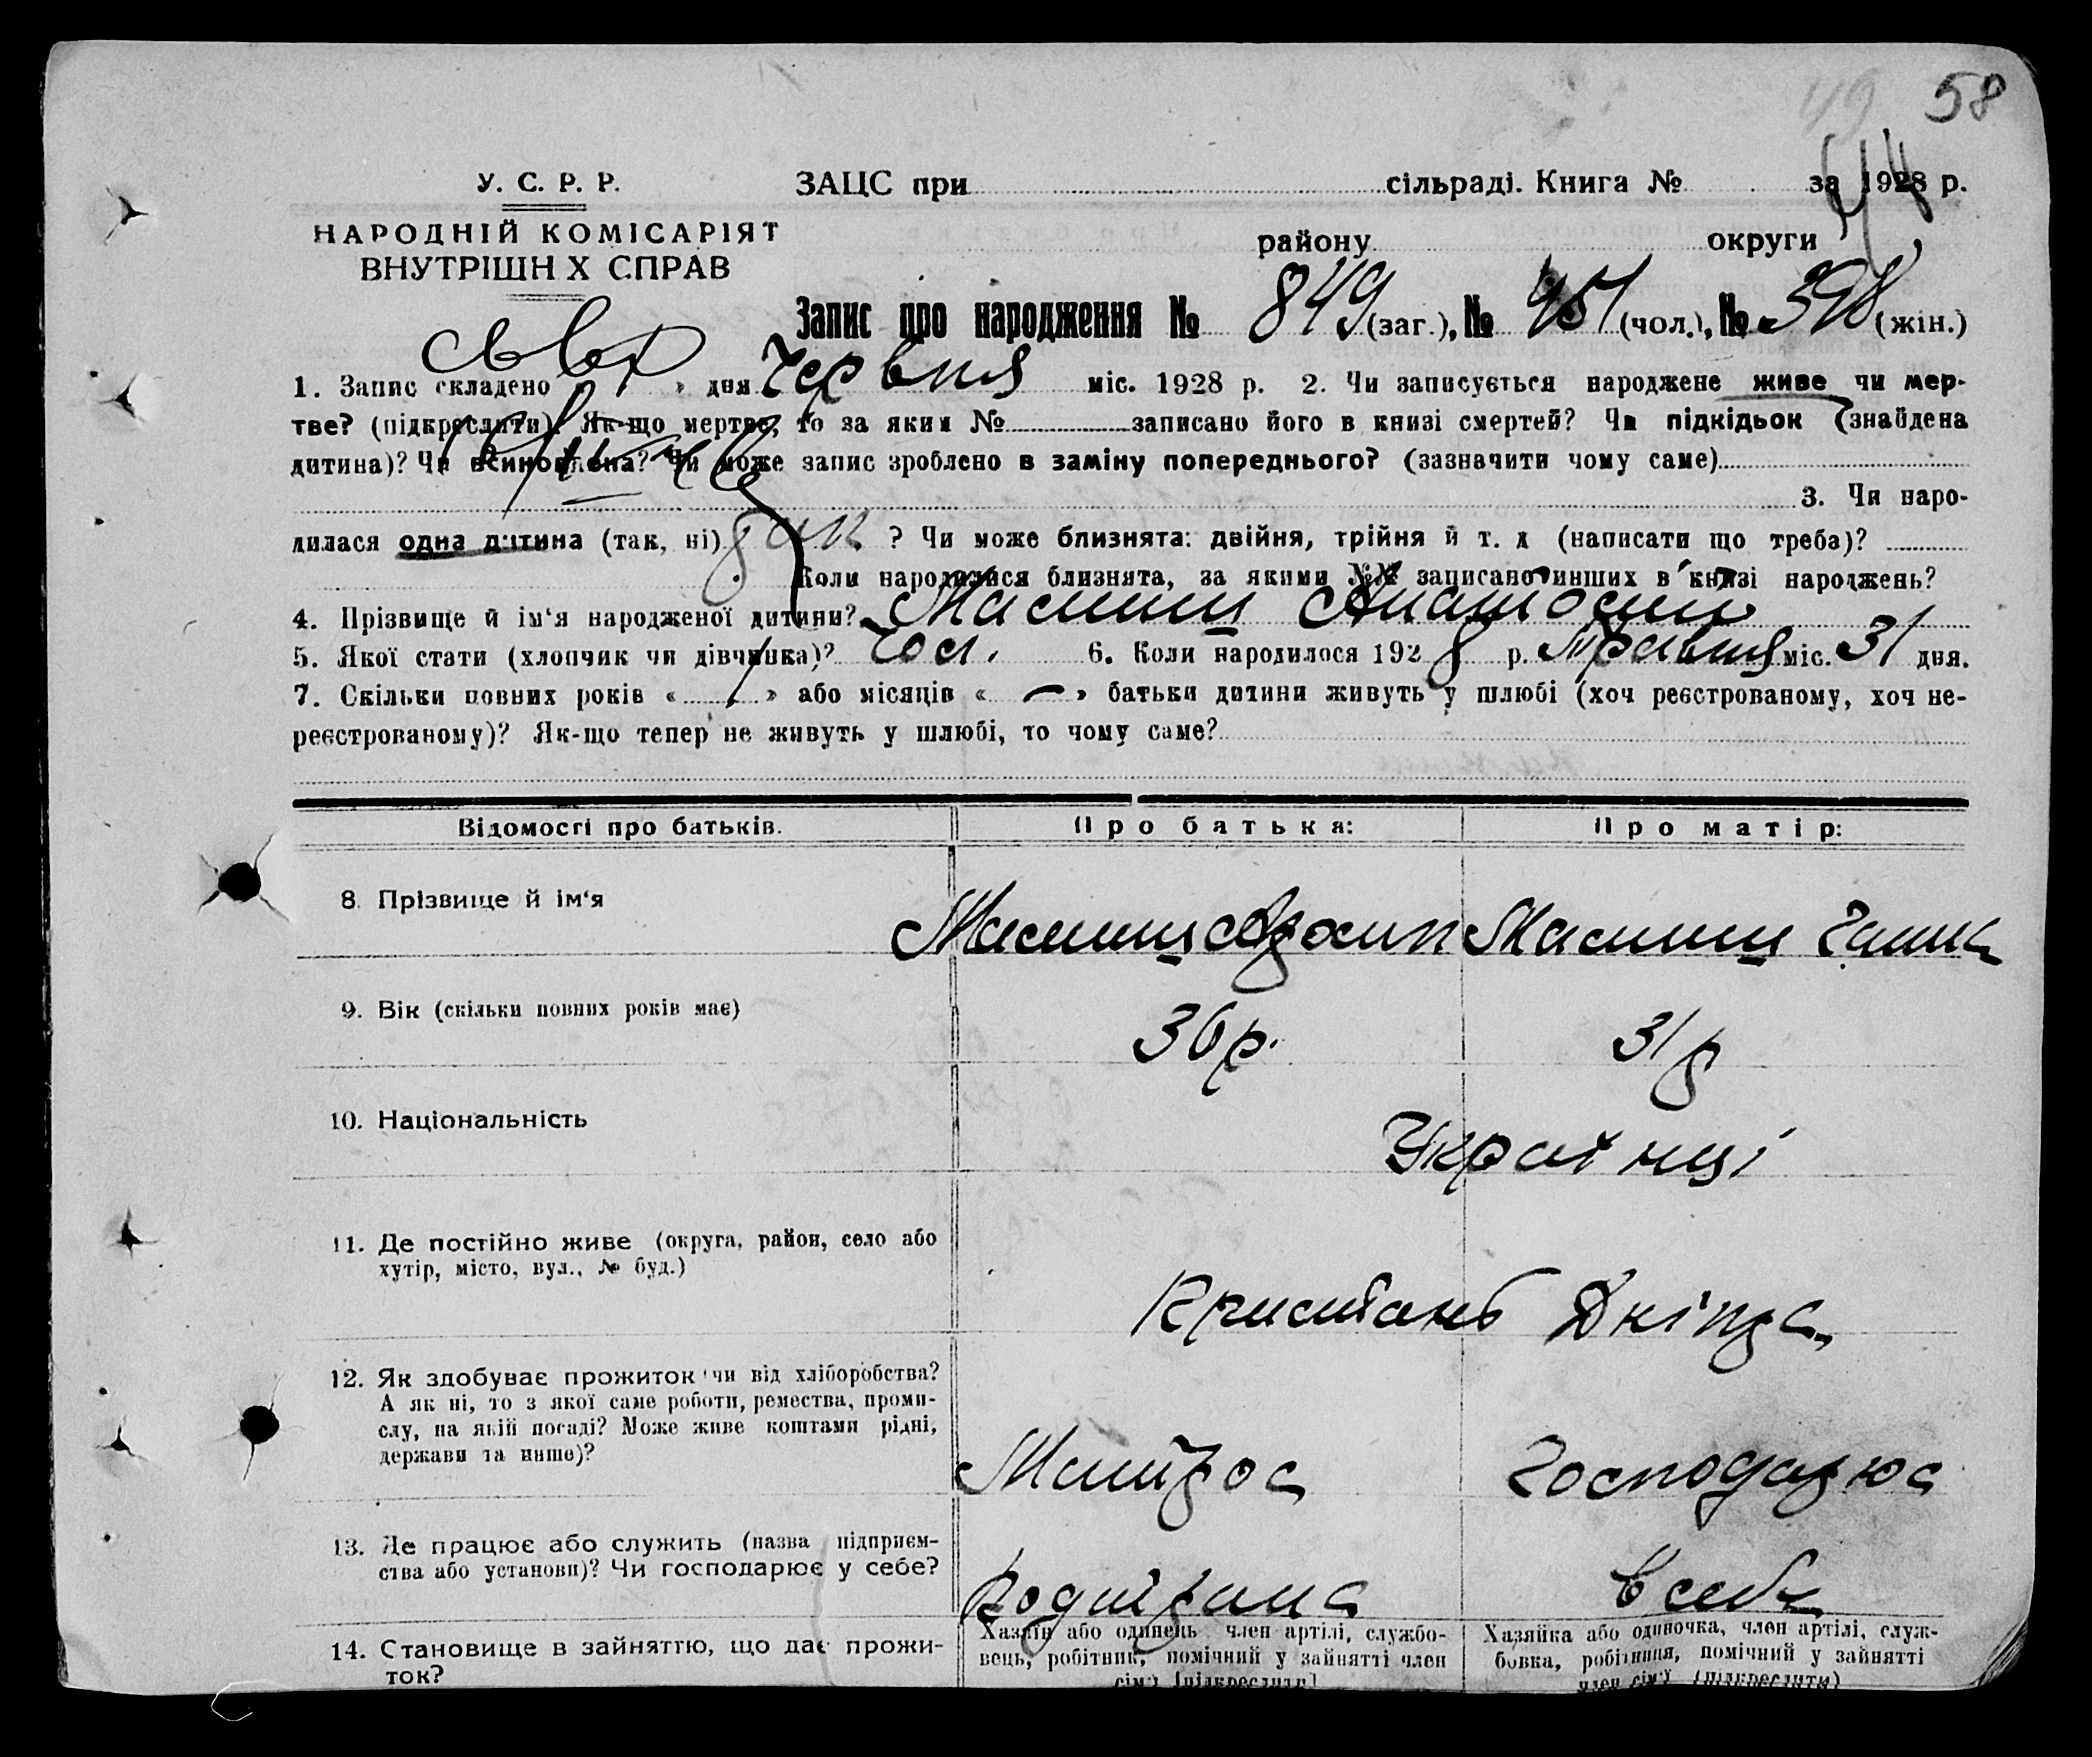 58
49
44
У. С. Р. Р.
ЗАЦС при сільраді. Книга № за 1928 р.
НАРОДНІЙ КОМІСАРІЯТ
ВНУТРІШН Х СПРАВ
району округи
Запис про народження № 849 (заг.), № 451 (чол.), № 398 (жін.)
1. Запис складено « » дня Червня міс. 1928 р. 2. Чи записується народжене живе чи мер-
тве? (підкреслити) Як-що мертве, то за яким № записано його в книзі смертей? Чи підкідьок (знайдена
дитина)? Чи всиновлена? Чи може запис зроблено в заміну попереднього? (зазначити чому саме)
3. Чи наро-
дилася одна дитина (так, ні) ? Чи може близнята: двійня, трійня й т. д (написати що треба)?
Коли народилися близнята, за якими №№ записано инших в книзі народжень?
4. Прізвище й ім'я народженої дитини? Анатолий
5. Якої стати (хлопчик чи дівчинка)? Чол. 6. Коли народилося 1928 р. Травня міс. 31 дня.
7. Скільки повних років « » або місяців « — » батьки дитини живуть у шлюбі (хоч реєстрованому, хоч не-
реєстрованому)? Як-що тепер не живуть у шлюбі, то чому саме?
Відомості про батьків. Про батька: Про матір:
8. Прізвище й ім'я
9. Вік (скільки повних років має) 36 р. 31 р
10. Національність Українці
11. Де постійно живе (округа, район, село або
хутір, місто, вул., № буд.)
Пристань Дніпра
12. Як здобуває прожиток чи від хліборобства?
А як ні, то з якої саме роботи, ремества, проми-
слу, на якій посаді? Може живе коштами рідні,
держави та инше)?
Матрос Господарює
13. Де працює або служить (назва підприєм-
ства або установи)? Чи господарює у себе?
в себе
14. Становище в зайняттю, що дає прожи-
ток?
Хазяїн або одинець член артілі, службо-
вець, робітник, помічний у зайнятті член
сім'ї (підкреслити)
Хазяйка або одиночка, член артілі, служ-
бовка, робітниця, помічний у зайнятті
член сім'ї (підкреслити)